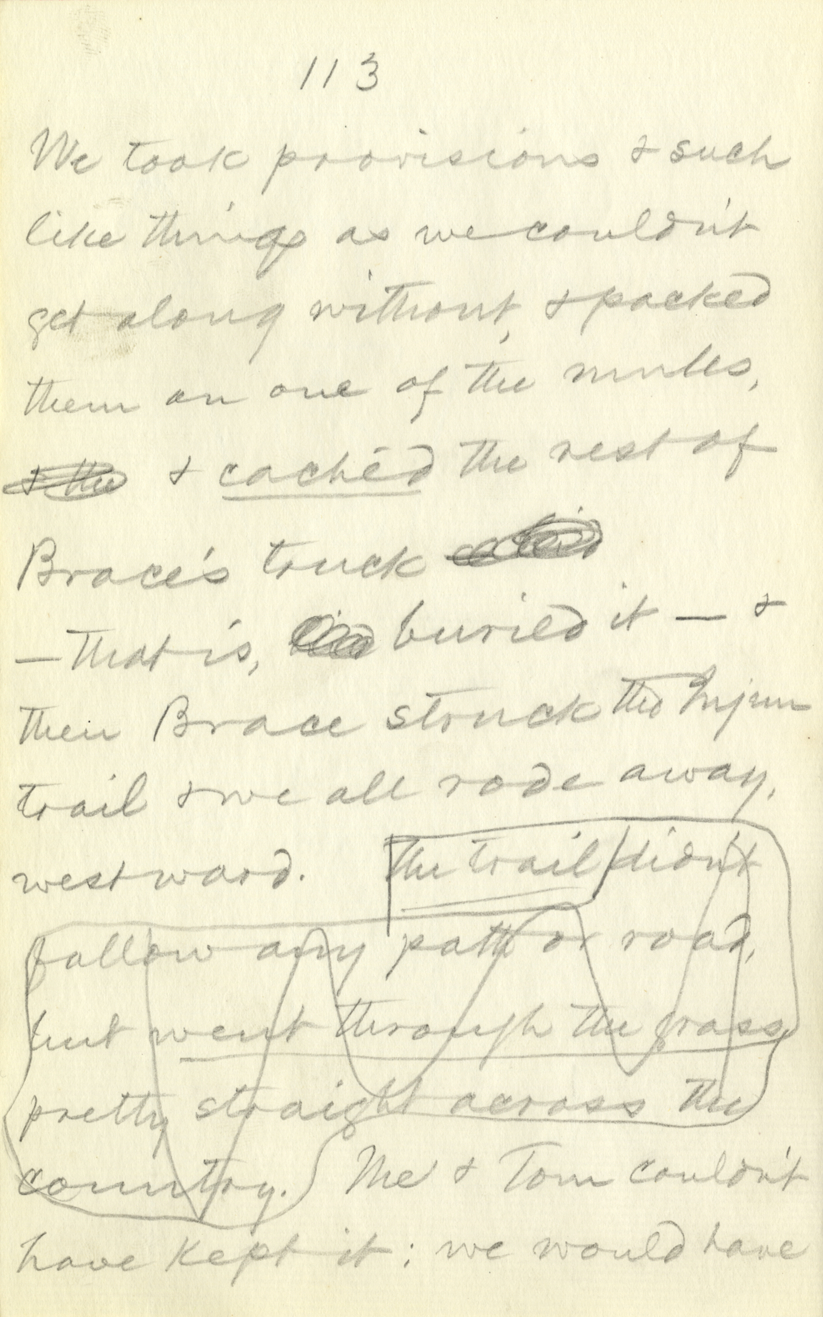 113
We took provisions & such
like things as we couldn't
get along without, & packed
them on one of the mules,
& the & cachéd the rest of
Brace's truck
—that is, buried it — &
then Brace struck the Injun
trail & we all rode away,
westward. The trail didn't
follow any path or road,
but went through the grass
pretty straight across the
country. Me & Tom couldn't
have kept it; we would have